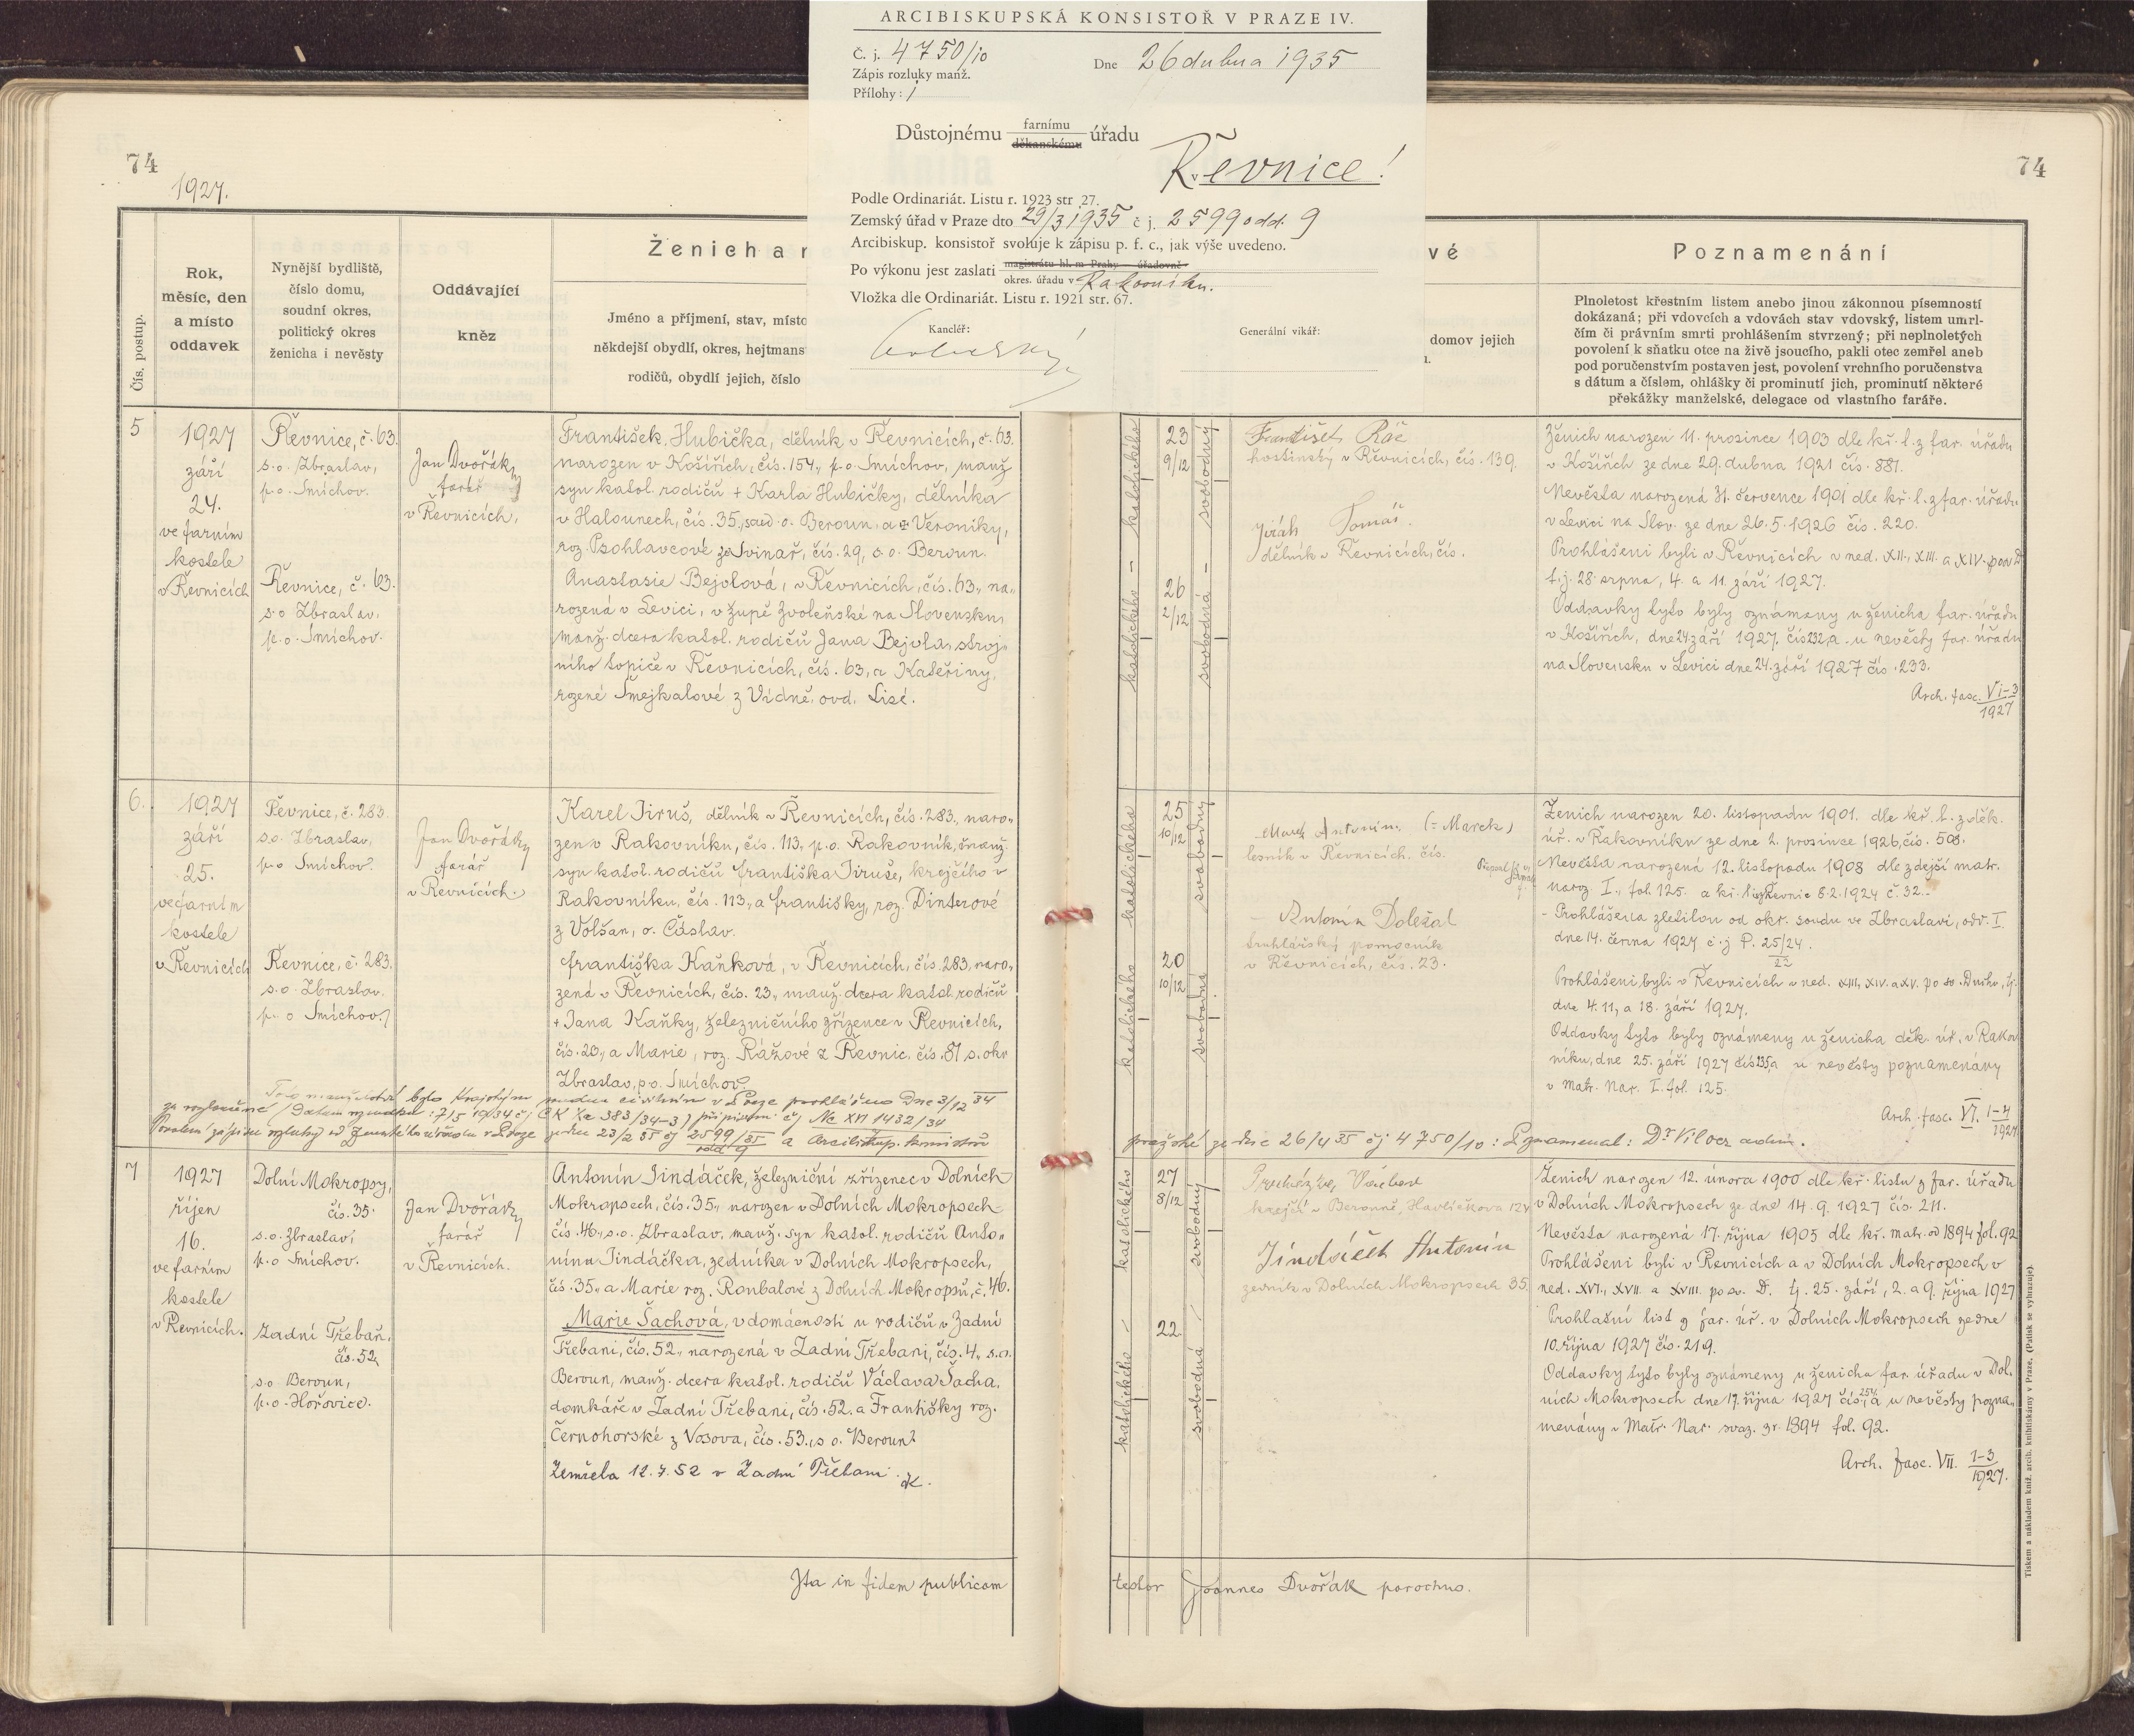 ARCIBISKUPSKÁ KONSISTOŘ V PRAZE IV.
Č. j. 4750/10 Dne 26 dubna 1935
Zápis rozluky manž.
Přílohy: 1
Důstojnému farnímu děkanskému úřadu
v Řevnice!
Podle Ordinariát. Listu r. 1923 str 27.
Zemský úřad v Praze dto 29/3 1935 č j. 2599 odd. 9
Arcibiskup. konsistoř svoluje k zápisu p. f. c., jak výše uvedeno.
Po výkonu jest zaslati magistrátu hl. m Prahy — úřadovně
okres. úřadu v Rakovníku.
Vložka dle Ordinariát. Listu r. 1921 str. 67.
Kancléř:
Generální vikář:
74
1927.
Čís. postup.
Rok,
měsíc, den
a místo
oddavek
Nynější bydliště,
číslo domu,
soudní okres,
politický okres
ženicha i nevěsty
Oddávající
kněz
Ženich a n
Jméno a příjmení, stav, místo
někdejší obydlí, okres, hejtmans
rodičů, obydlí jejich, číslo
5
1927
září
24.
ve farním
kostele
v Řevnicích
Řevnice, č. 63.
s. o. Zbraslav,
p. o. Smíchov.
Řevnice, č. 63.
s. o Zbraslav,
p. o. Smíchov.
Jan Dvořák,
farář
v Řevnicích,
František Hubička, dělník v Řevnicích, č. 63.
narozen v Košířích, čís. 154, p. o. Smíchov, manž
syn katol. rodičů + Karla Hubičky, dělníka
v Halounech, čís. 35, soud. o. Beroun, a Veroniky,
roz. Psohlavcové ze Svinař, čís. 29, s. o. Beroun.
Anastasie Bejvlová, v Řevnicích, čís. 63, na-
rozená v Levici, v župě Zvoleňské na Slovensku,
manž. dcera katol. rodičů Jana Bejvla, stroj-
ního topiče v Řevnicích, čís. 63, a Kateřiny,
rozené Šmejkalové z Vídně, ovd. Lisé.
6.
1927
září
25.
ve farním
kostele
v Řevnicích
Řevnice, č. 283.
s. o. Zbraslav,
p. o Smíchov.
Řevnice, č. 283.
s. o. Zbraslav.
p. o Smíchov.
Jan Dvořák,
farář
v Řevnicích.
Karel Jiruš, dělník v Řevnicích, čís. 283, naro-
zen v Rakovníku, čís. 113, p. o. Rakovník, manž.
syn katol. rodičů Františka Jiruše, krejčího v
Rakovníku, čís. 113, a Františky, roz. Dinterové
z Volšan, o. Čáslav.
Františka Kaňková, v Řevnicích, čís. 283, naro-
zená v Řevnicích, čís. 23, manž. dcera katol. rodičů
+ Jana Kaňky, železničního zřízence v Řevnicích,
čís. 23, a Marie, roz. Rážové z Řevnic, čís. 81 s. okr
Zbraslav, p. o. Smíchov.
Toto manželství bylo Krajským soudem civilním v Praze prohlášeno dne 3/12 34
za rozloučené / Datum rozsudku: 7/5 1934 čj Ck Xa 383/34-3 / přípisem čj Nc XVI 1432/34
Povolení zápisu rozluky od Zemského úřadu v Praze ze dne 23/2 35 čj 2599/35 odd 9 a arcibiskup. konsistoře
7
1927
říjen
16.
ve farním
kostele
v Řevnicích.
Dolní Mokropsy,
čís. 35.
s. o. Zbraslaví
p. o Smíchov.
Zadní Třebaň,
čís. 52,
s. o Beroun,
p. o. Hořovice.
Jan Dvořák,
farář
v Řevnicích.
Antonín Jindáček, železniční zřízenec v Dolních
Mokropsech, čís. 35, narozen v Dolních Mokropsech
čís. 46, s. o. Zbraslav, manž. syn katol. rodičů Anto-
nína Jindáčka, zedníka v Dolních Mokropsech,
čís. 35, a Marie roz. Roubalové z Dolních Mokrops, č. 46.
Marie Šachová, v domácnosti u rodičů v Zadní
Třebani, čís. 52, narozená v Zadní Třebani, čís. 4, s. o.
Beroun, manž. dcera katol. rodičů Václava Šacha,
domkáře v Zadní Třebani, čís. 52. a Františky roz.
Černohorské z Vosova, čís. 53, s o. Beroun.
Zemřela 12. 7. 52 v Zadní Třebani.
Ita in fidem publicam
74
vé
domov jejich
Poznamenání
Plnoletost křestním listem anebo jinou zákonnou písemností
dokázaná; při vdovcích a vdovách stav vdovský, listem umrl-
čím či právním smrti prohlášením stvrzený; při neplnoletých
povolení k sňatku otce na živě jsoucího, pakli otec zemřel aneb
pod poručenstvím postaven jest, povolení vrchního poručenstva
s dátum a číslem, ohlášky či prominutí jich, prominutí některé
překážky manželské, delegace od vlastního faráře.
katolického – katolického
23
9/12
26
2/12
svobodný – svobodná
František Ráč
hostinský v Řevnicích, čís. 139.
Jirák Tomáš.
dělník v Řevnicích, čís.
Ženich narozen 11. prosince 1903 dle kř. l. z far. úřadu
v Košířích ze dne 29. dubna 1921 čís. 881.
Nevěsta narozená 31. července 1901 dle kř. l. z far. úřadu
v Levici na Slov. ze dne 26. 5. 1926 čís. 220.
Prohlášeni byli v Řevnicích v ned. XII., XIII. a XIV. po sv D
t. j. 28. srpna, 4. a 11. září 1927.
Oddavky tyto byly oznámeny u ženicha far. úřadu
v Košířích, dne 24. září 1927, čís 232, a u nevěsty far. úřadu
na Slovensku v Levici dne 24. září 1927 čís. 233.
Arch. fasc. VI-3
1927
katolického katolického
25
10/12
20
10/12
svobodný svobodná
Marek Antonín (= Marek)
lesník v Řevnicích. čís.
Antonín Doležal
truhlářský pomocník
v Řevnicích, čís. 23.
Ženich narozen 20. listopadu 1901. dle kř. l. z děk.
úř. v Rakovníku ze dne 2. prosince 1926, čís. 508.
Nevěsta narozená 12. listopadu 1908 dle zdejší matr.
naroz. I., fol. 125. a kř. listu Řevnic 8. 2. 1924 č. 32.
- Prohlášena zletilou od okr. soudu ve Zbraslavi, odd. I.
dne 14. června 1927 č. j P. 25/24.
22
Prohlášeni byli v Řevnicích v ned. XIII, XIV. a XV. po sv. Duchu, tj.
dne 4. 11, a 18. září 1927.
Oddavky tyto byly oznámeny u ženicha děk. úř. v Rakov
níku, dne 25. září 1927 čís 235, a u nevěsty poznamenány
v Matr. Nar. I. fol. 125.
Arch. fasc. VI. 1-4
1927.
pražské ze dne 26/4 35 čj 4750/10: Poznamenal: Dr Vilocz adm.
katolického – katolického
27
8/12
22
svobodný / svobodná
Procházka Václav
krejčí v Berouně, Havlíčkova 127
Jindáček Antonín
zedník v Dolních Mokropsech 35.
Ženich narozen 12. února 1900 dle kř. listu z far. úřadu
v Dolních Mokropsech ze dne 14. 9. 1927 čís. 211.
Nevěsta narozená 17. října 1905 dle kř. matr. od 1894 fol. 92
Prohlášeni byli v Řevnicích a v Dolních Mokropsech v
ned. XVI., XVII. a XVIII. po sv. D. tj. 25. září, 2. a 9. října 1927
Prohlašní list z far. úř. v Dolních Mokropsech ze dne
10. října 1927 čís. 219.
Oddavky tyto byly oznámeny u ženicha far. úřadu v Dol-
ních Mokropsech dne 17. října 1927 čís. 254, a u nevěsty pozna-
menány v Matr. Nar. svaz. zr. 1894 fol. 92.
Arch. fasc. VII. 1-3
1927.
testor Joannes Dvořák parochus.
Tiskem a nákladem kníž. arcib. knihtiskárny v Praze. (Patisk se vyhrazuje).